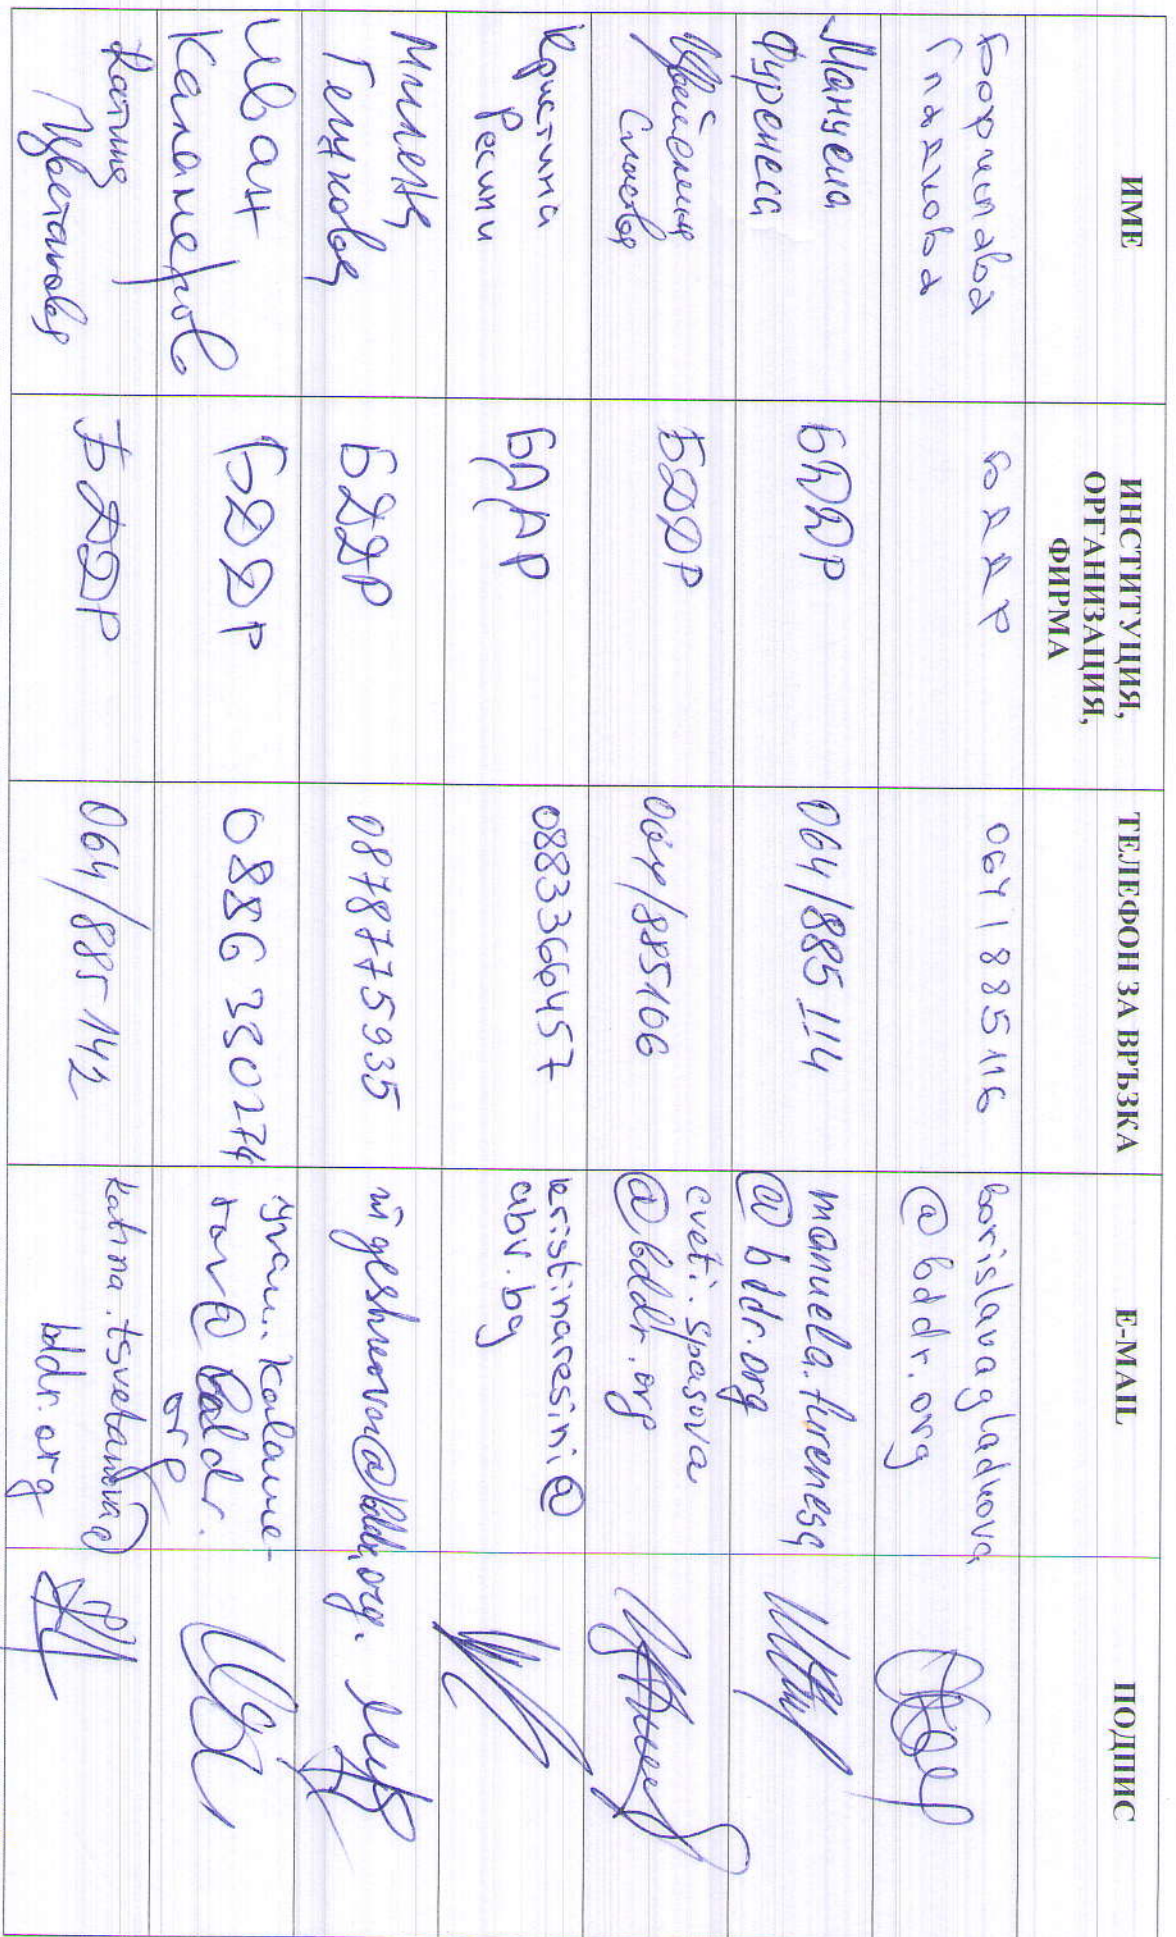 ИМЕ
ИНСТИТУЦИЯ,
ОРГАНИЗАЦИЯ,
ФИРМА
ТЕЛЕФОН ЗА ВРЪЗКА
E-MAIL
ПОДПИС
Борислава
Гладкова
БДДР
064/885116
borislavagladkova
@bddr.org
Мануела
Фуренеса
БДДР
064/885 114
manuela.furenesa
@bddr.org
Цветелина
Спасова
БДДР
064/885106
cveti.spasova
@bddr.org
Кристина
Ресини
БДДР
0883366457
kristinaresini@
abv.bg
Милена
Гешкова
БДДР
0878775935
mgeshkova@bddr.org.
Иван
Каламеров
БДДР
0886 330274
bddr.
org
Катина
Цветанова
БДДР
064/885-142
katina.tsvetanova@
bddr.org